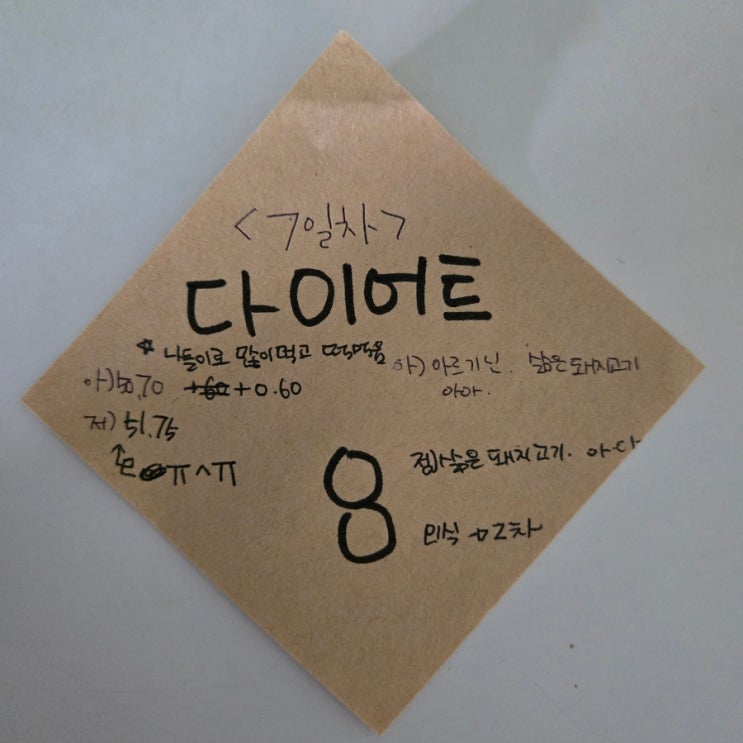 <7일차>
다이어트
* 나들이로 많이먹고 떡먹음
아) 50.70 +0.60
저) 51.75
ㅠㅅㅠ
아) 아르기닌. 삶은돼지고기
아아.
8
점) 삶은돼지고기. 아아
민식